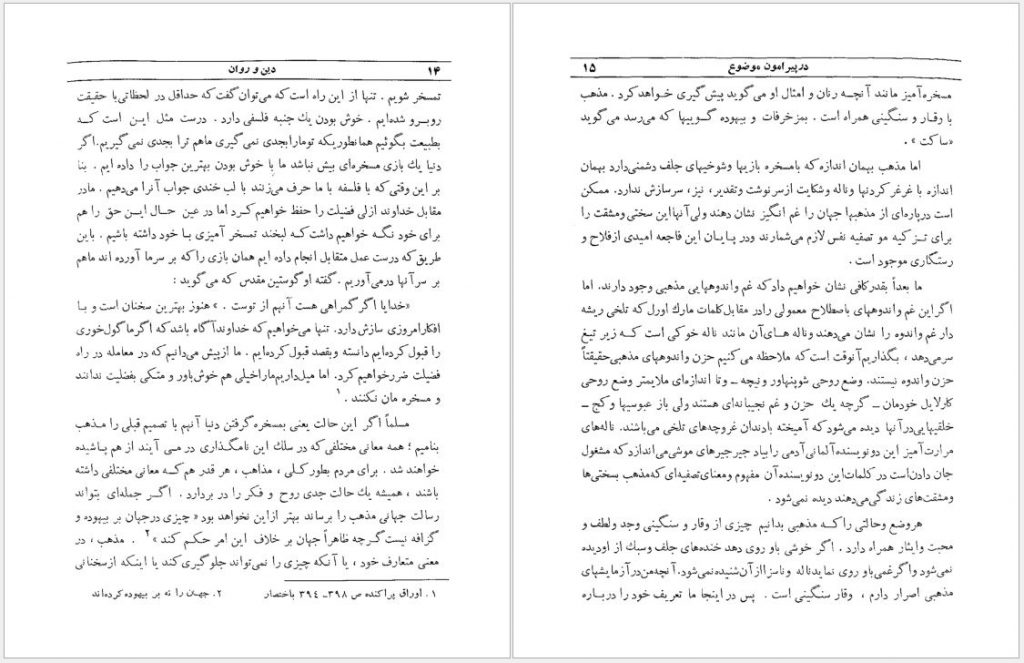 ۱۴ دین و روان
تمسخر شویم . تنها از این راه است که می‌توان گفت که حداقل در لحظاتی با حقیقت
روبرو شده‌ایم . خوش بودن یك جنبه فلسفی دارد . درست مثل این است که
بطبیعت بگوئیم همانطوریکه تو مارا بجدی نمی‌گیری ماهم ترا بجدی نمی‌گیریم. اگر
دنیا یك بازی مسخره‌ای بیش نباشد ما با خوش بودن بهترین جواب را داده ایم . بنا
بر این وقتی که با فلسفه با ما حرف می‌زنند با لب خندی جواب آنرا می‌دهیم . مادر
مقابل خداوند ازلی فضیلت را حفظ خواهیم کرد اما در عین حال این حق را هم
برای خود نگه خواهیم داشت که لبخند تمسخر آمیزی با خود داشته باشیم . باین
طریق که درست عمل متقابل انجام داده ایم همان بازی را که بر سرما آورده اند ماهم
بر سر آنها در می‌آوریم . گفته او گوستین مقدس که می گوید :
«خدایا اگر گمراهی هست آنهم از توست . » هنوز بهترین سخنان است و با
افکار امروزی سازش دارد. تنها می‌خواهیم که خداوند آگاه باشد که اگر ما گول خوری
را قبول کرده‌ایم دانسته و بقصد قبول کرده‌ایم . ما از پیش می‌دانیم که در معامله در راه
فضیلت ضرر خواهیم کرد. اما میل داریم ما را خیلی هم خوش باور و متکی بفضلیت ندانند
و مسخره مان نکنند . ۱
مسلماً اگر این حالت یعنی بمسخره گرفتن دنیا آنهم با تصمیم قبلی را مذهب
بنامیم ؛ همه معانی مختلفی که در سلك این نامگذاری در می آیند از هم پاشیده
خواهند شد . برای مردم بطور کلی ، مذاهب ، هر قدر هم که معانی مختلفی داشته
باشند ، همیشه یك حالت جدی روح و فکر را در بردارد . اگر جمله‌ای بتواند
رسالت جهانی مذهب را برساند بهتر از این نخواهد بود « چیزی در جهان بر بیهوده و
گزافه نیست گرچه ظاهراً جهان بر خلاف این امر حکم کند »۲ . مذهب ، در
معنی متعارف خود ، یا آنکه چیزی را نمی‌تواند جلوگیری کند یا اینکه از سخنانی
۱. اوراق پراکنده ص ۳۹۸ـ ۳۹۴ باختصار ۲. جهان را نه بر بیهوده کرده‌اند
در پیرامون موضوع ۱۵
مسخره آمیز مانند آنچه رنان و امثال او می‌گوید پیش گیری خواهد کرد . مذهب
با وقار و سنگینی همراه است . بمزخرفات و بیهوده گوییها که می‌رسد می‌گوید
«ساکت » .
اما مذهب بهمان اندازه که با مسخره بازیها و شوخیهای جلف دشمنی‌دارد بهمان
اندازه با غرغر کردنها و ناله و شکایت از سرنوشت و تقدیر، نیز ، سر سازش ندارد. ممکن
است در پاره‌ای از مذهبها جهان را غم انگیز نشان دهند ولی آنها این سختی و مشقت را
برای تزکیه مو تصفیه نفس لازم می‌شمارند و در پایان این فاجعه امیدی از فلاح و
رستگاری موجود است .
ما بعداً بقدر کافی نشان خواهیم داد که غم و اندوههایی مذهبی وجود دارند. اما
اگر این غم و اندوههای باصطلاح معمولی را در مقابل کلمات مارك اورل که تلخی ریشه
دار غم و اندوه را نشان می‌دهند و ناله های آن مانند ناله خوکی است که زیر تیغ
سر می‌دهد ، بگذاریم آنوقت است که ملاحظه می کنیم حزن و اندوههای مذهبی حقیقتاً
حزن و اندوه نیستند. وضع روحی شوپنهاور و نیچه ـ و تا اندازه‌ای ملایمتر وضع روحی
کارلایل خودمان ـ گرچه یك حزن و غم نجیبانه‌ای هستند ولی باز عبوسیها و کج ـ
خلقیهایی در آنها دیده می‌شود که آمیخته با دندان غروچه‌های تلخی می‌باشند. ناله‌های
مرارت آمیز این دو نویسنده آلمانی آدمی را بیاد جیر جیرهای موشی می‌اندازد که مشغول
جان دادن است در کلمات این دو نویسنده آن مفهوم و معنای تصفیه‌ای که مذهب بسختی‌ها
و مشقت‌های زندگی می‌دهند دیده نمی‌شود .
هر وضع و حالتی را که مذهبی بدانیم چیزی از وقار و سنگینی وجد و لطف و
محبت و ایثار همراه دارد . اگر خوشی باو روی دهد خنده‌های جلف و سبك از او دیده
نمی‌شود و اگر غمی باو روی نماید ناله و ناسزا از آن شنیده نمی‌شود. آنچه من در آزمایشهای
مذهبی اصرار دارم ، وقار سنگینی است . پس در اینجا ما تعریف خود را درباره